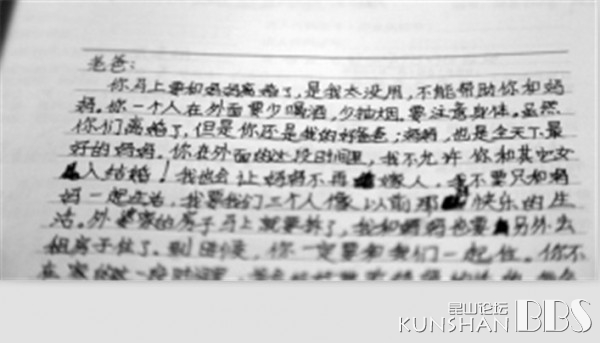 老爸:
你马上要和妈妈离婚了,是我太没用,不能帮助你和妈
妈。你一个人在外面要少喝酒,少抽烟,要注意身体。虽然
你们离婚了,但是你还是我的好爸爸;妈妈,也是全天下最
好的妈妈。你在外面的这段时间里,我不允许你和其它女
人结婚!我也会让妈妈不再嫁人,我不要只和妈
妈一起生活,我要我们三个人像以前那快乐的生
活。外婆家的房子马上就要拆了,我和妈妈也要另外去
租房子住了。到时候,你一定要和我们一起住。你不
在家的这一段时间里
昆山论坛
KUNSHAN BBS